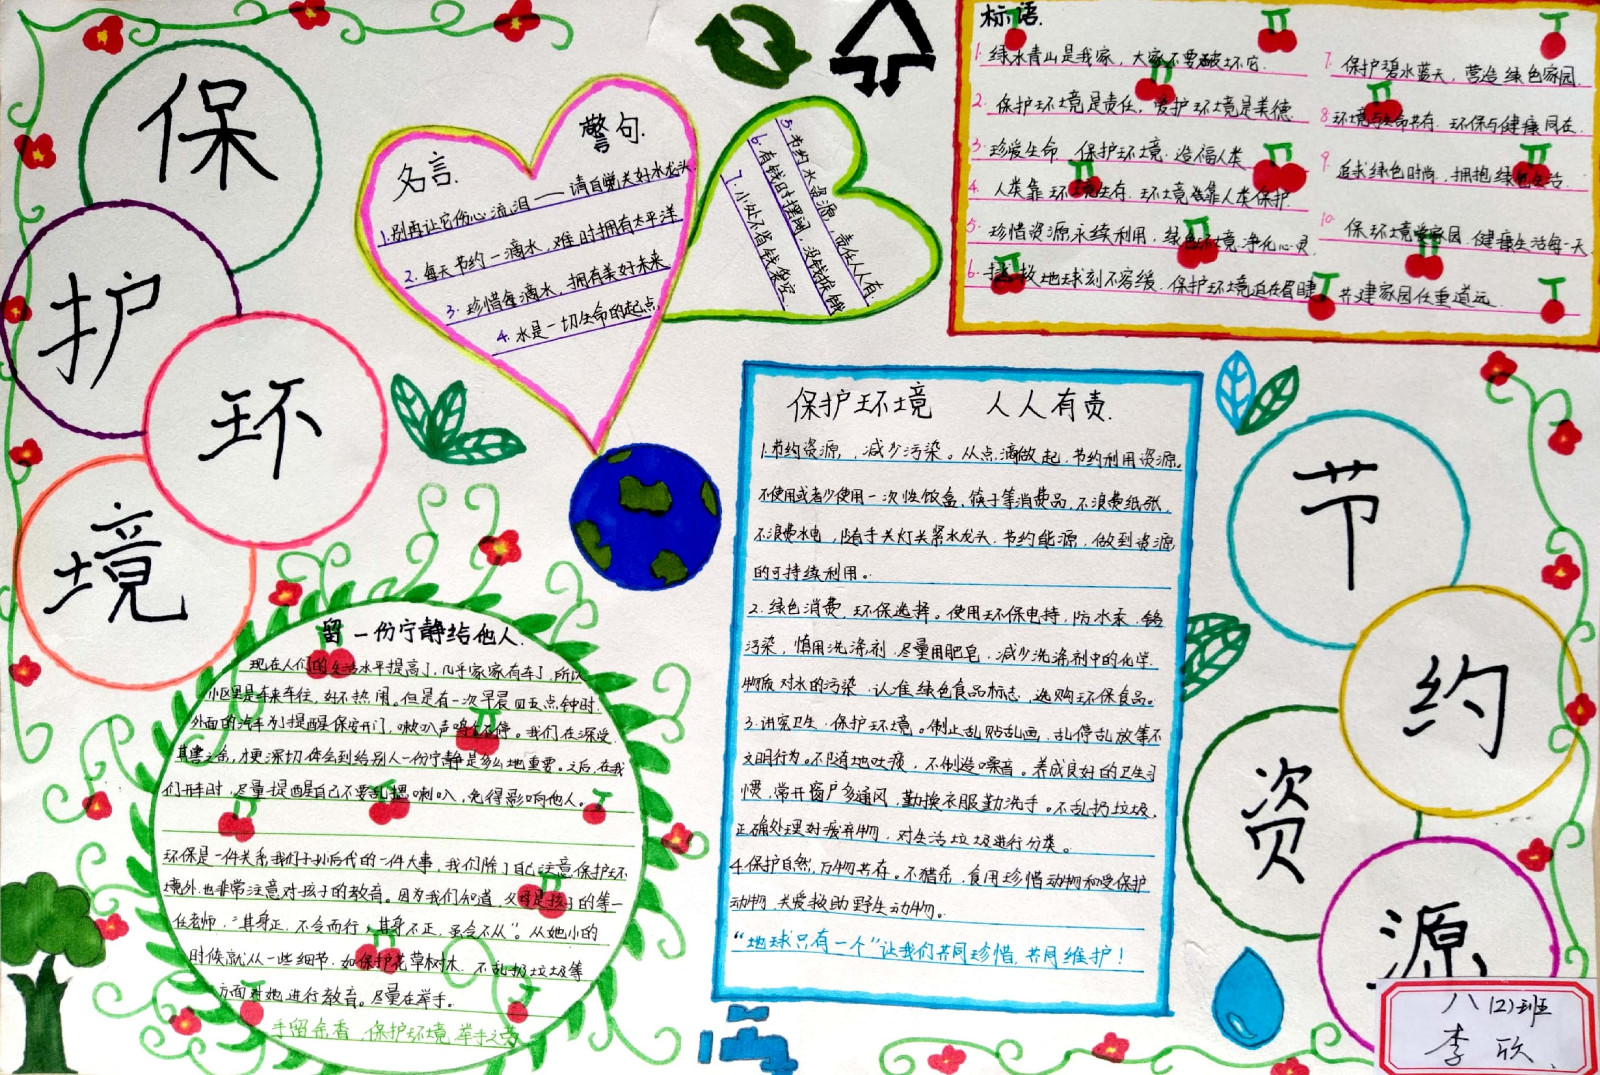 保
护
环
境
名言.
警句.
1.别再让它伤心流泪——请自觉关好水龙头
2.每天节约一滴水,难时拥有太平洋
3.珍惜每滴水,拥有美好未来
4.水是一切生命的起点
5.节约水资源,责任人人有
6.有钱时摆阔,没钱挨饿
7.小处不省钱袋空
标语.
1.绿水青山是我家,大家不要破坏它.
2.保护环境是责任,爱护环境是美德
3.珍爱生命 保护环境.造福人类
4.人类靠环境生存.环境靠人类保护.
5.珍惜资源永续利用,绿色环境.净化心灵
6.拯救地球刻不容缓.保护环境迫在眉睫
7.保护碧水蓝天,营造绿色家园.
8环境与生命共存.环保与健康同在.
9.追求绿色时尚,拥抱绿色生活
10.保环境爱家园.健康生活每一天
共建家园任重道远.
保护环境 人人有责.
1.节约资源,减少污染。从点滴做起.节约利用资源。
不使用或者少使用一次性饭盒、筷子等消费品.不浪费纸张.
不浪费水电,随手关灯关紧水龙头.节约能源,做到资源
的可持续利用。
2.绿色消费.环保选择。使用环保电持,防水汞、铬
污染,慎用洗涤剂.尽量用肥皂.减少洗涤剂中的化学.
物质对水的污染.认准绿色食品标志,选购环保食品。
3.讲究卫生.保护环境。制止乱贴乱画、乱停乱放等不
文明行为。不随地吐痰,不制造噪音。养成良好的卫生习
惯,常开窗户多通风,勤换衣服勤洗手。不乱扔垃圾,
正确处理好废弃物,对生活垃圾进行分类。
4.保护自然,万物共存。不猎杀、食用珍惜动物和受保护
动物,关爱救助野生动物。
“地球只有一个”让我们共同珍惜,共同维护!
留一份宁静给他人.
现在人们的生活水平提高了,几乎家家有车了,所以
小区里是车来车往,好不热闹。但是有一次早晨四五点钟时.
外面的汽车为了提醒保安开门,喇叭声鸣个不停。我们在深受
其害之余,才更深切体会到给别人一份宁静是多么地重要。之后,在我
们开车时,尽量提醒自己不要乱摁喇叭,免得影响他人。
环保是一件关系我们子孙后代的一件大事,我们除了自己注意保护环
境外.也非常注意对孩子的教育。因为我们知道,父母是孩子的第一
任老师,“其身正,不令而行;其身不正,虽令不从”。从她小的
时候就从一些细节,如保护花草树木、不乱扔垃圾等
方面对她进行教育。尽量在举手。
手留余香,保护环境,举手之劳
节
约
资
源
八(2)班
李欣